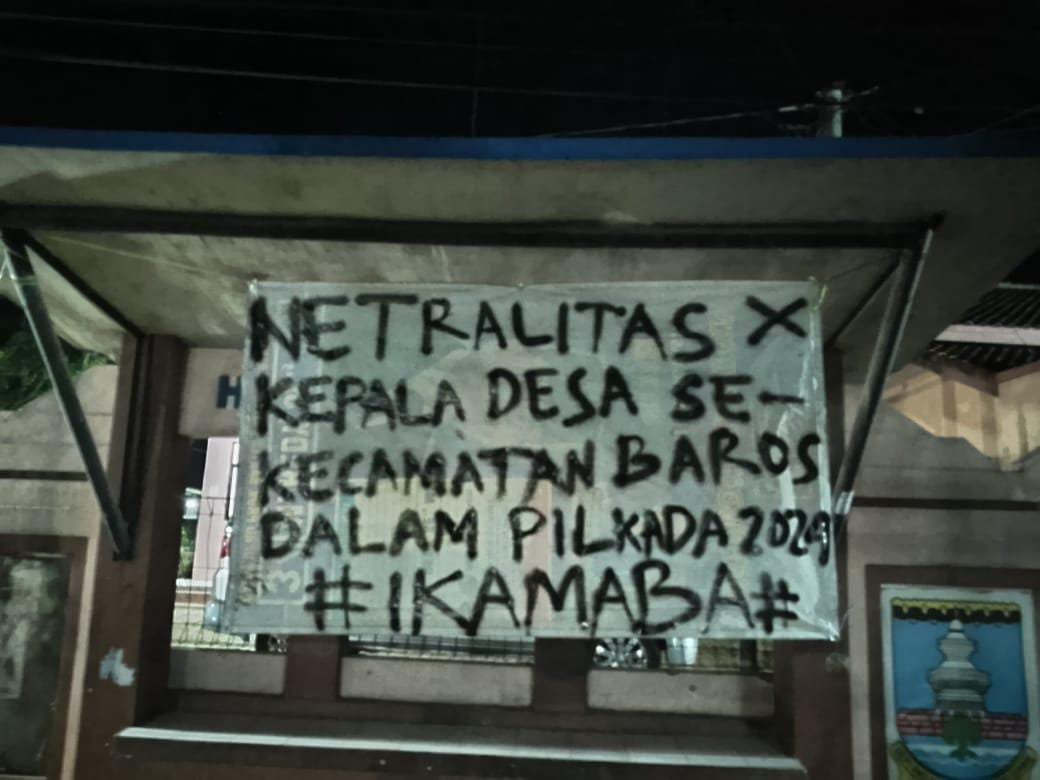 NETRALITAS X
KEPALA DESA SE-
KECAMATAN BAROS
DALAM PILKADA 2024
#IKAMABA#
H